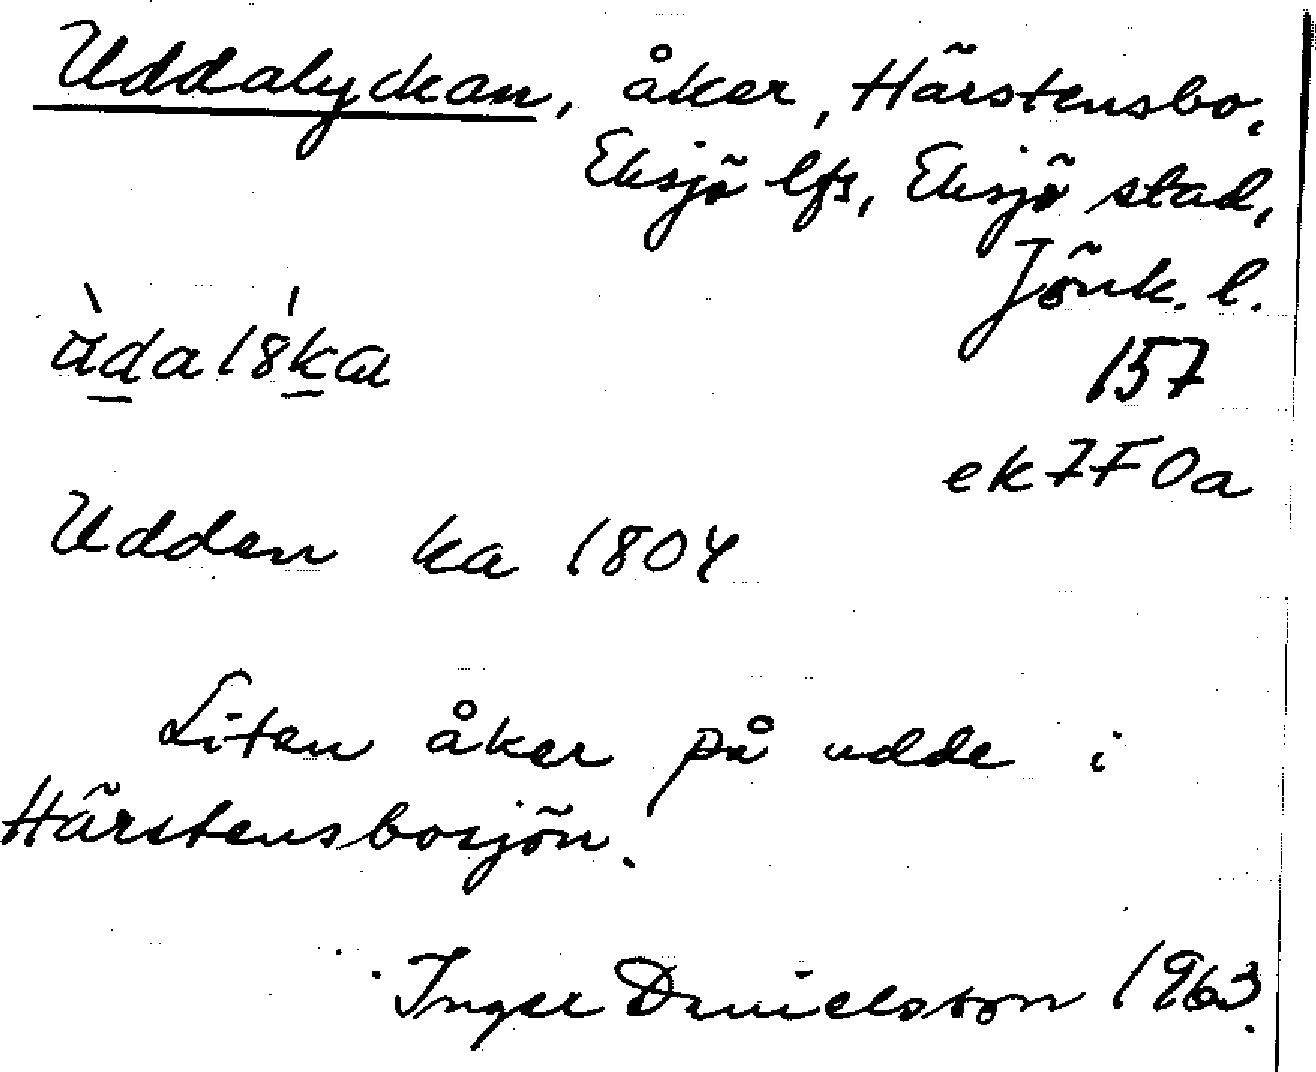 Uddalyckan, åker, Härstensbo,
Eksjö lfs, Eksjö stad,
Jönk. l.
157
ek 7F0a
Udden ka 1804
Liten åker på udde i
Härstensbosjön.
Inger Danielsson 1963.